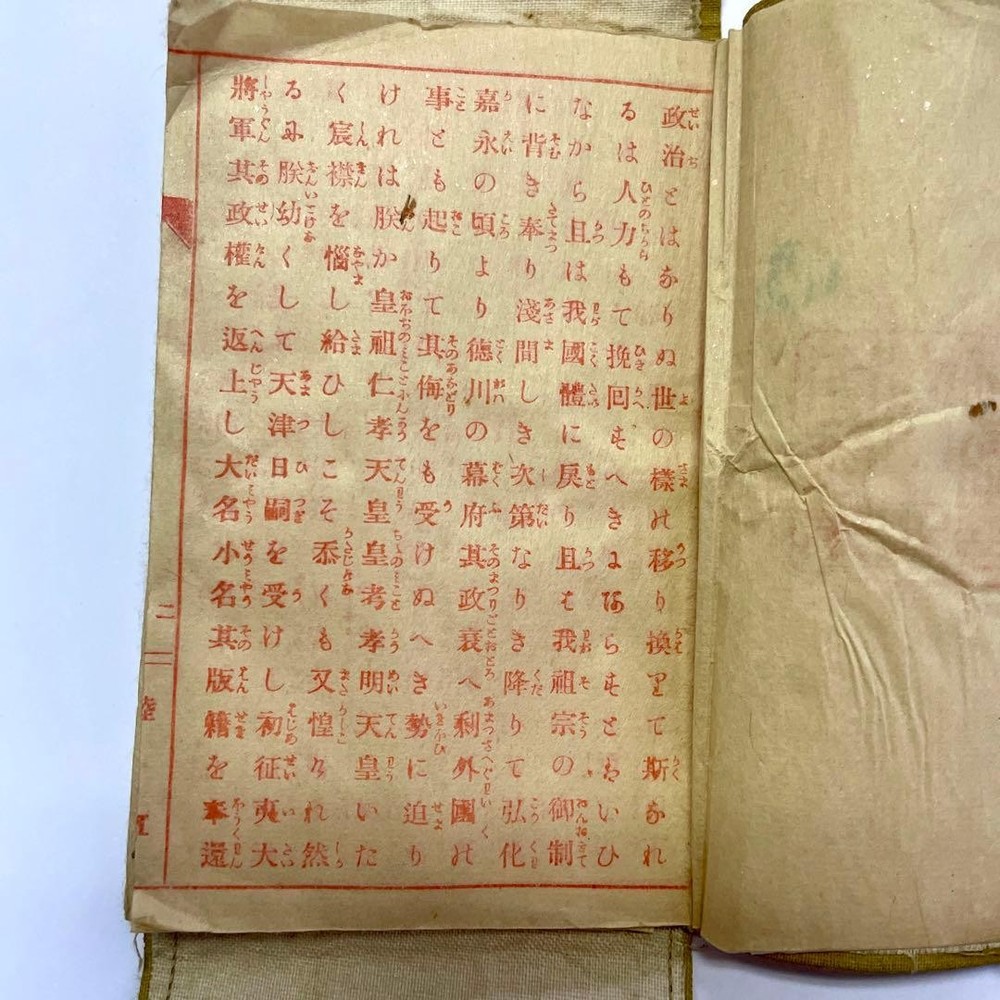 政治とはなりぬ世の樣の移り換りて斯なれ
るは人力もて挽回すへきにあらすとはいひ
なから且は我國體に戻り且は我祖宗の御制
に背き奉り淺間しき次第なりき降りて弘化
嘉永の頃より徳川の幕府其政衰へ剩外國の
事とも起りて其侮をも受けぬへき勢に迫り
けれは朕か皇祖仁孝天皇皇考孝明天皇いた
く宸襟を惱し給ひしこそ忝くも又惶けれ然
るに朕幼くして天津日嗣を受けし初征夷大
將軍其政權を返上し大名小名其版籍を奉還
二